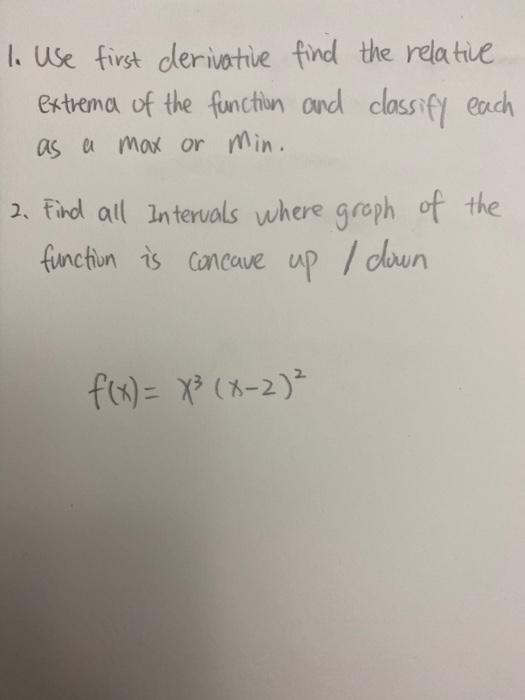 1. Use first derivative find the relative
extrema of the function and classify each
as a max or Min.
2. Find all Intervals where graph of the
function is concave up / down
f(x) = x³ (x-2)²